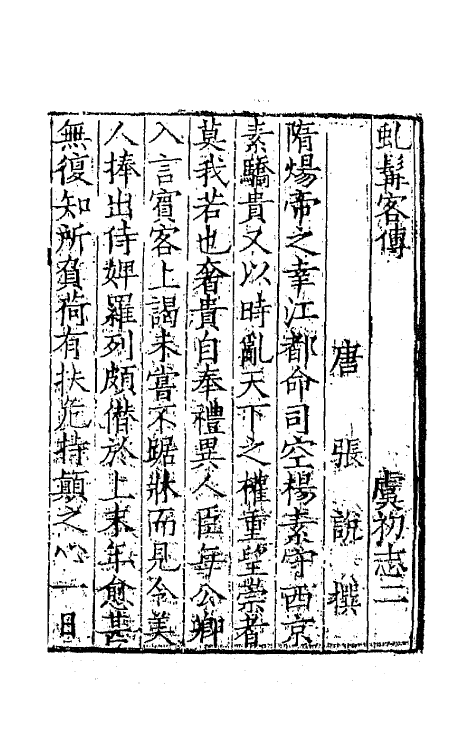 虬髯客傳 虞初志二
唐 張 說 撰
隋煬帝之幸江都命司空楊素守西京
素驕貴又以時亂天下之權重望崇者
莫我若也奢貴自奉禮異人臣每公卿
入言賓客上謁未嘗不踞牀而見令美
人捧出侍婢羅列頗僭於上末年愈甚
無復知所負荷有扶危持顛之心一日